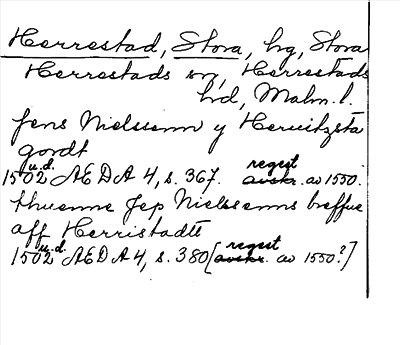 Herrestad, Stora, hg, Stora
Herrestads sn, Herrestads
hd, Malm. l.
Jens Nielssenn y Heruitzsta
gordt
u.d. regest
1502 AEDA 4, s. 367. avskr. av 1550.
thuenne Jep Nielssenns breffue
aff Herristadtt
u.d. regest
1502 AEDA 4, s. 380 [avskr. av 1550?]